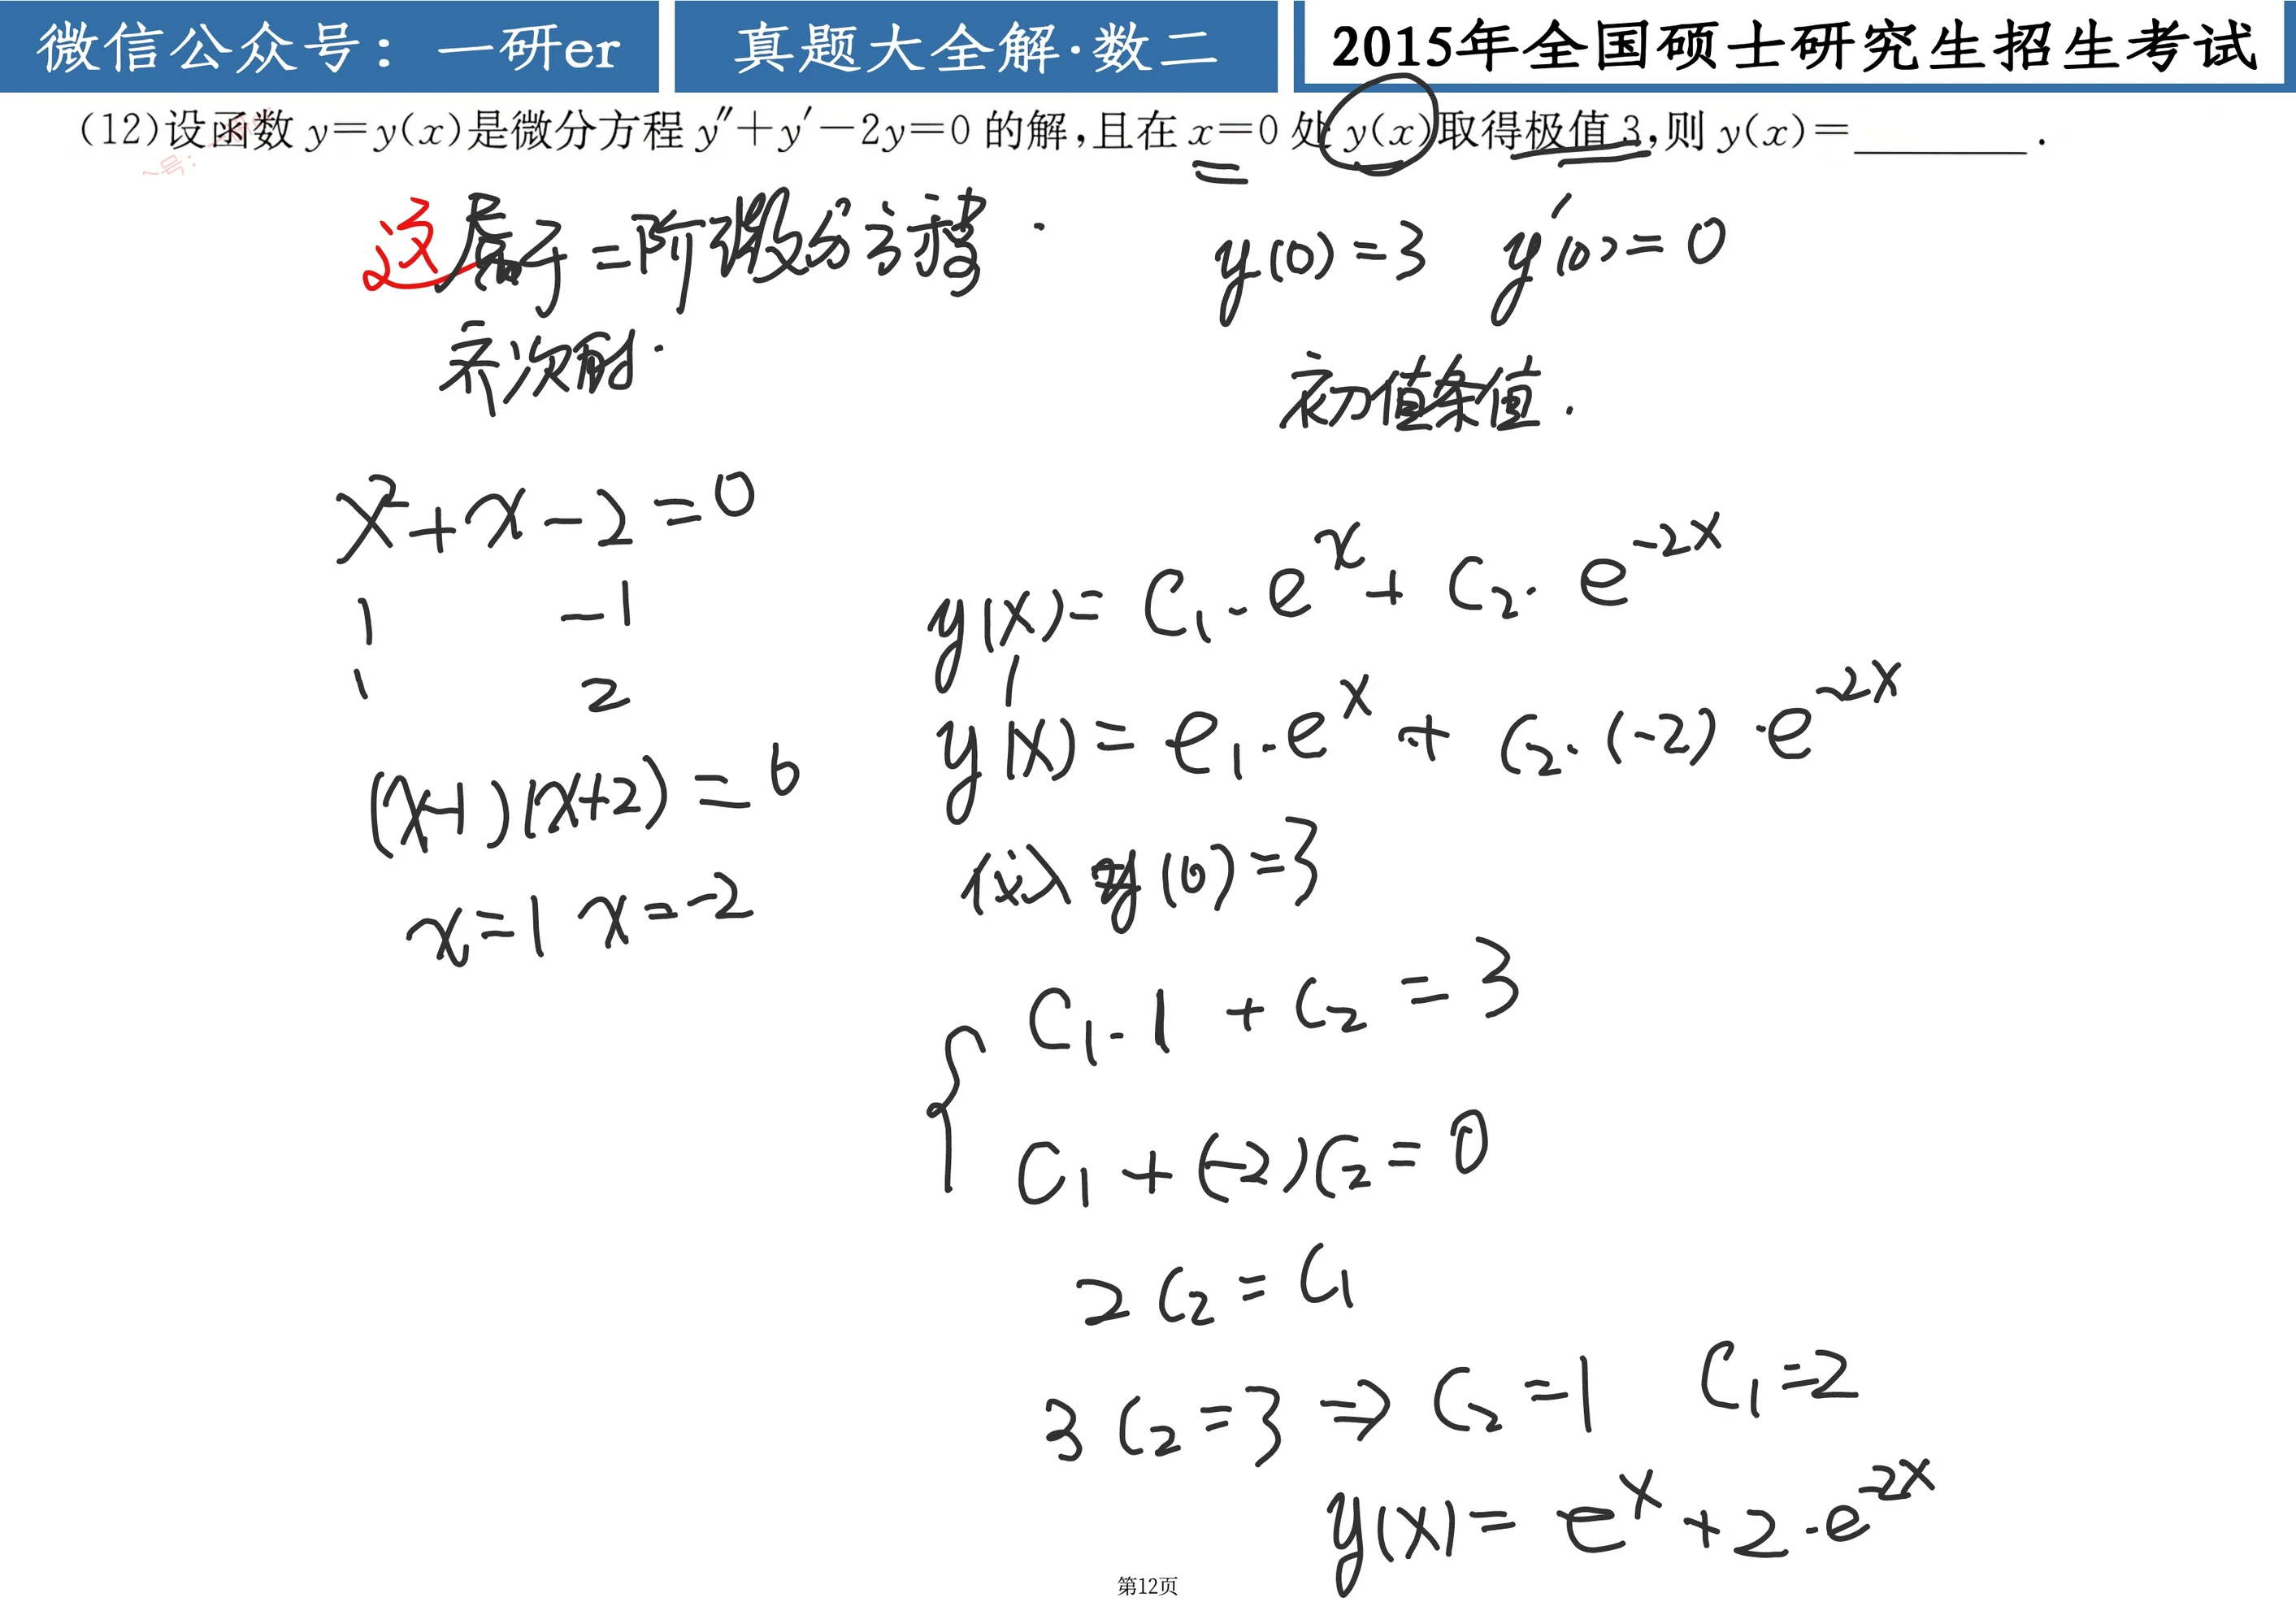 微信公众号：一研er
真题大全解·数二
2015年全国硕士研究生招生考试
(12)设函数 y=y(x)是微分方程 y″+y′−2y=0 的解,且在 x=0 处 y(x)取得极值 3,则 y(x)=________.
号：
这属于二阶微分方程.
y(0)=3 y′(0)=0
齐次的.
初值条值.
x²+x−2=0
1 −1
1 2
(x−1)(x+2)=0
x=1 x=−2
y(x)= C₁·eˣ+ C₂·e⁻²ˣ
y′(x)= e₁·eˣ + C₂·(−2)·e⁻²ˣ
代入 y(0)=3
C₁·1 + C₂ = 3
C₁+(−2)C₂=0
2C₂=C₁
3C₂=3 ⇒ C₂=1 C₁=2
y(x)= eˣ+2·e⁻²ˣ
第12页